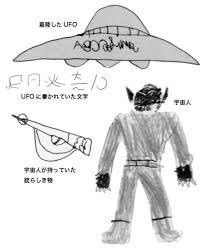 着陸したUFO
UFOに書かれていた文字
宇宙人
宇宙人が持っていた
銃らしき物